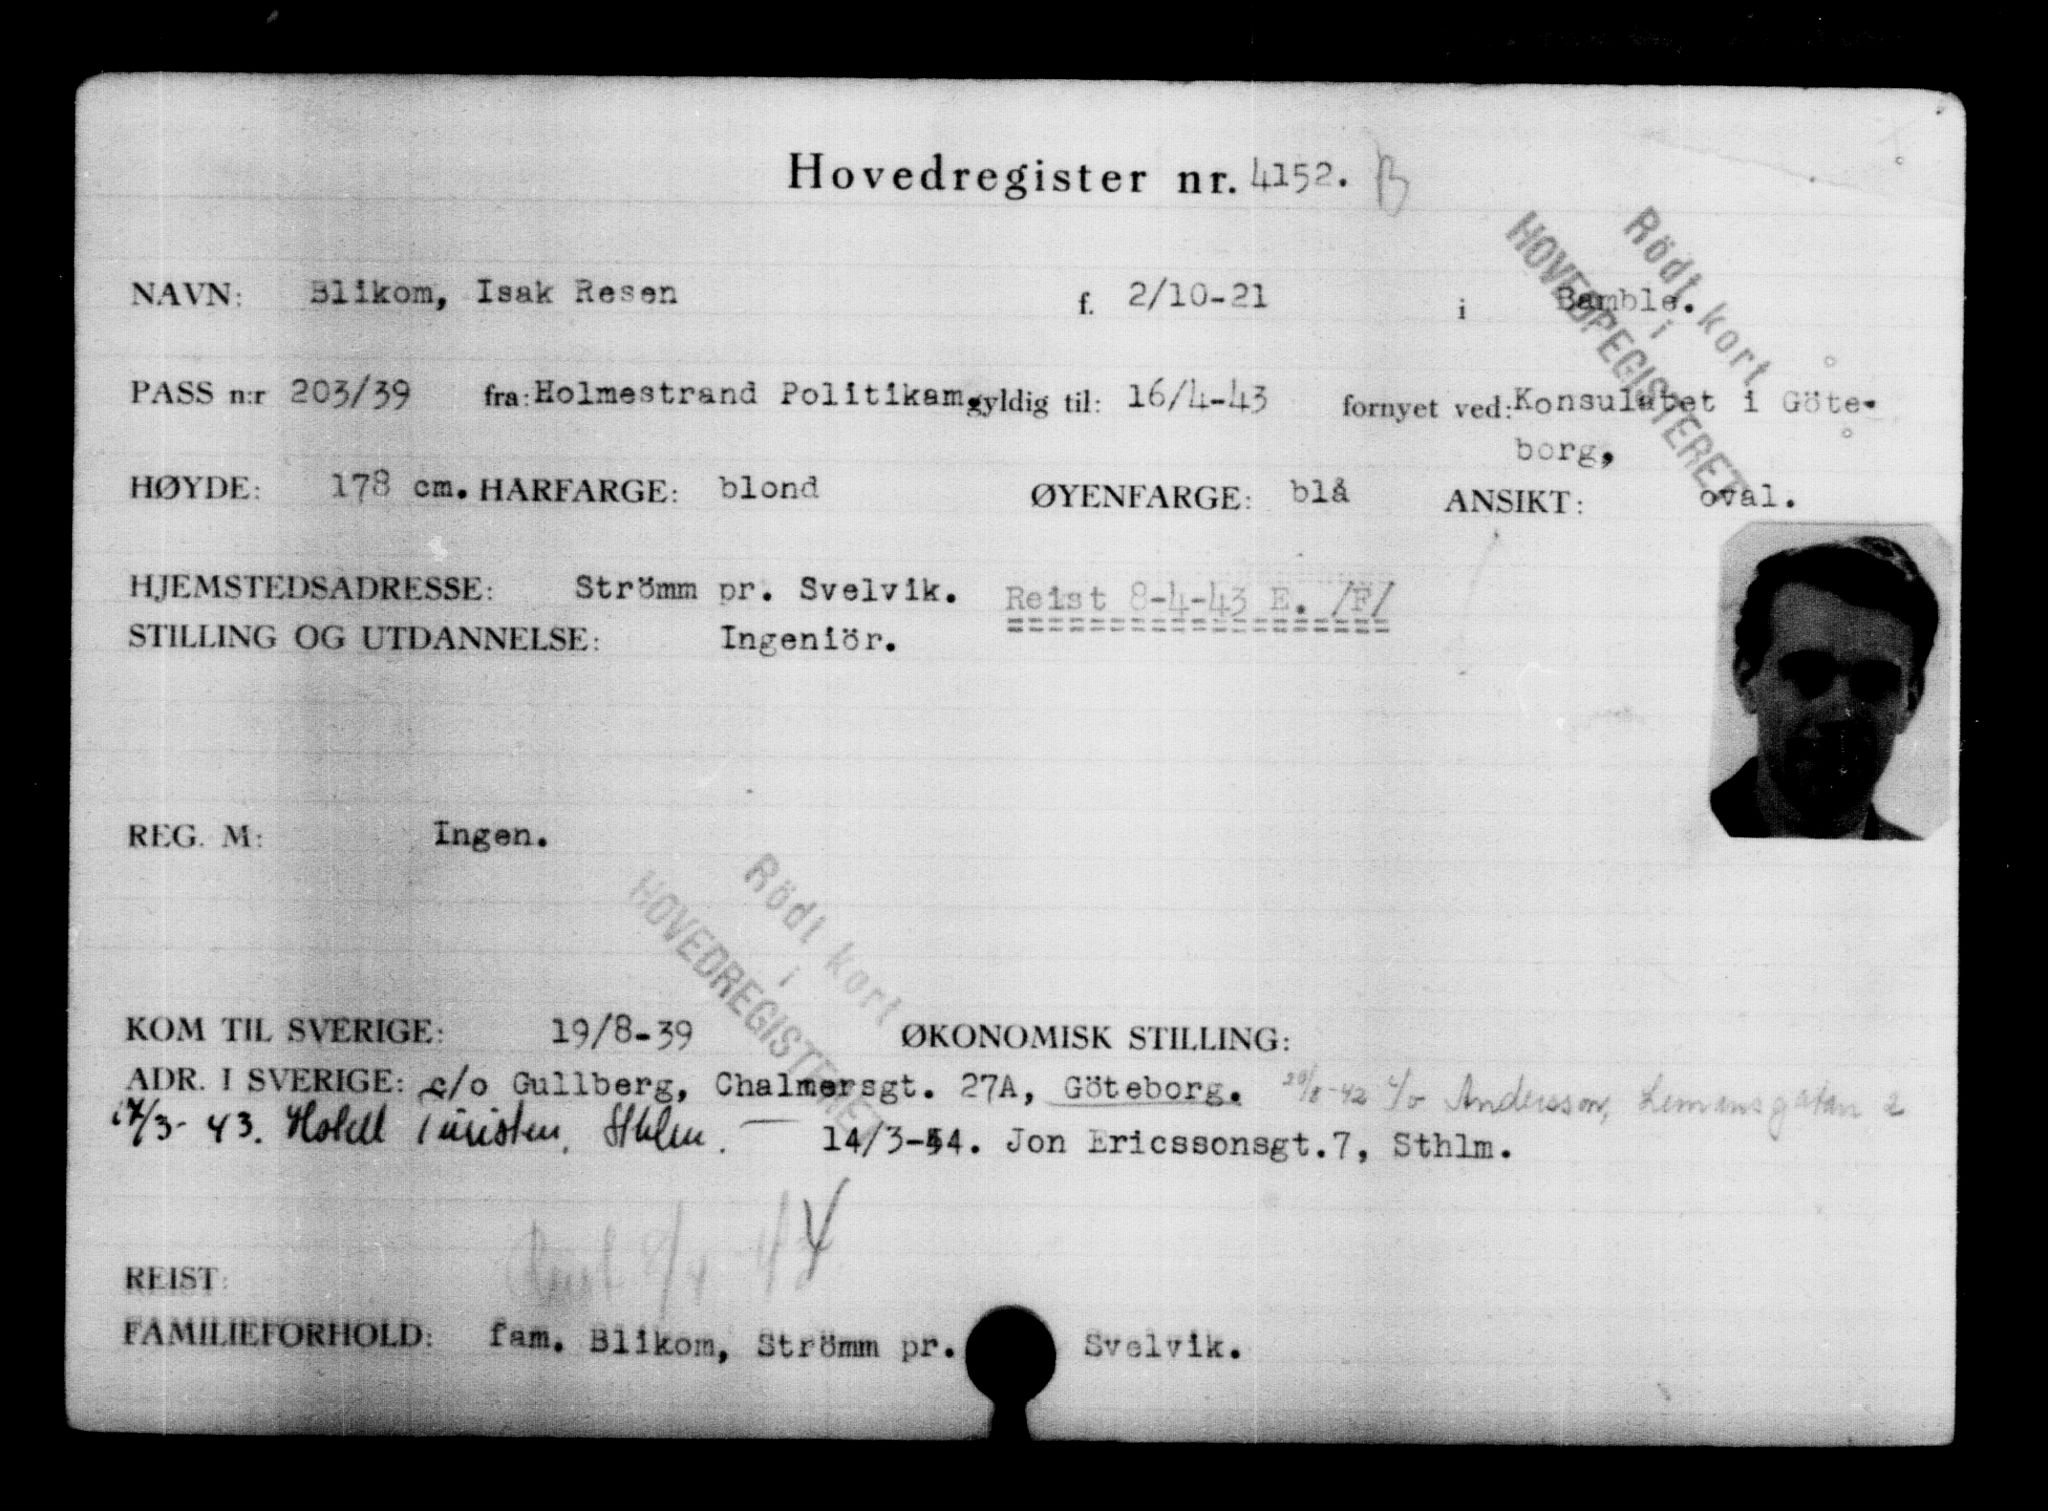 Hovedregister nr. 4152. B
Rödt kort
i
HOVEDREGISTERET
NAVN: Blikom, Isak Resen f. 2/10-21 i Bamble.
PASS n:r 203/39 fra: Holmestrand Politikam. gyldig til: 16/4-43 fornyet ved: Konsulatet i Göte-
borg,
HØYDE: 178 cm. HARFARGE: blond ØYENFARGE: blå ANSIKT: oval.
HJEMSTEDSADRESSE: Strömm pr. Svelvik. Reist 8-4-43 E. /F/
STILLING OG UTDANNELSE: Ingeniör.
REG. M: Ingen.
Rödt kort
i
HOVEDREGISTERET
KOM TIL SVERIGE: 19/8-39 ØKONOMISK STILLING:
ADR. I SVERIGE: c/o Gullberg, Chalmersgt. 27A, Göteborg. 20/8-42 c/o Andersson, Lemansgatan 2
17/3-43. Hotell Turisten, Sthlm. — 14/3-44. Jon Ericssonsgt.7, Sthlm.
Reist
REIST:
FAMILIEFORHOLD: fam. Blikom, Strömm pr. Svelvik.